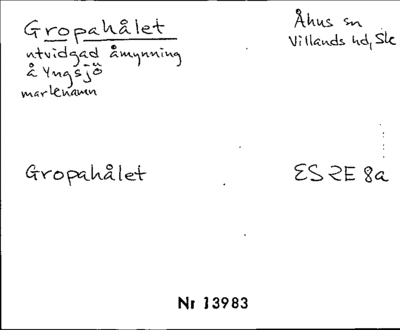 Gropahålet
Åhus sn
Villands hd, Sk
utvidgad åmynning
å Yngsjö
markenamn
Gropahålet
ES 2E 8a
Nr 13983